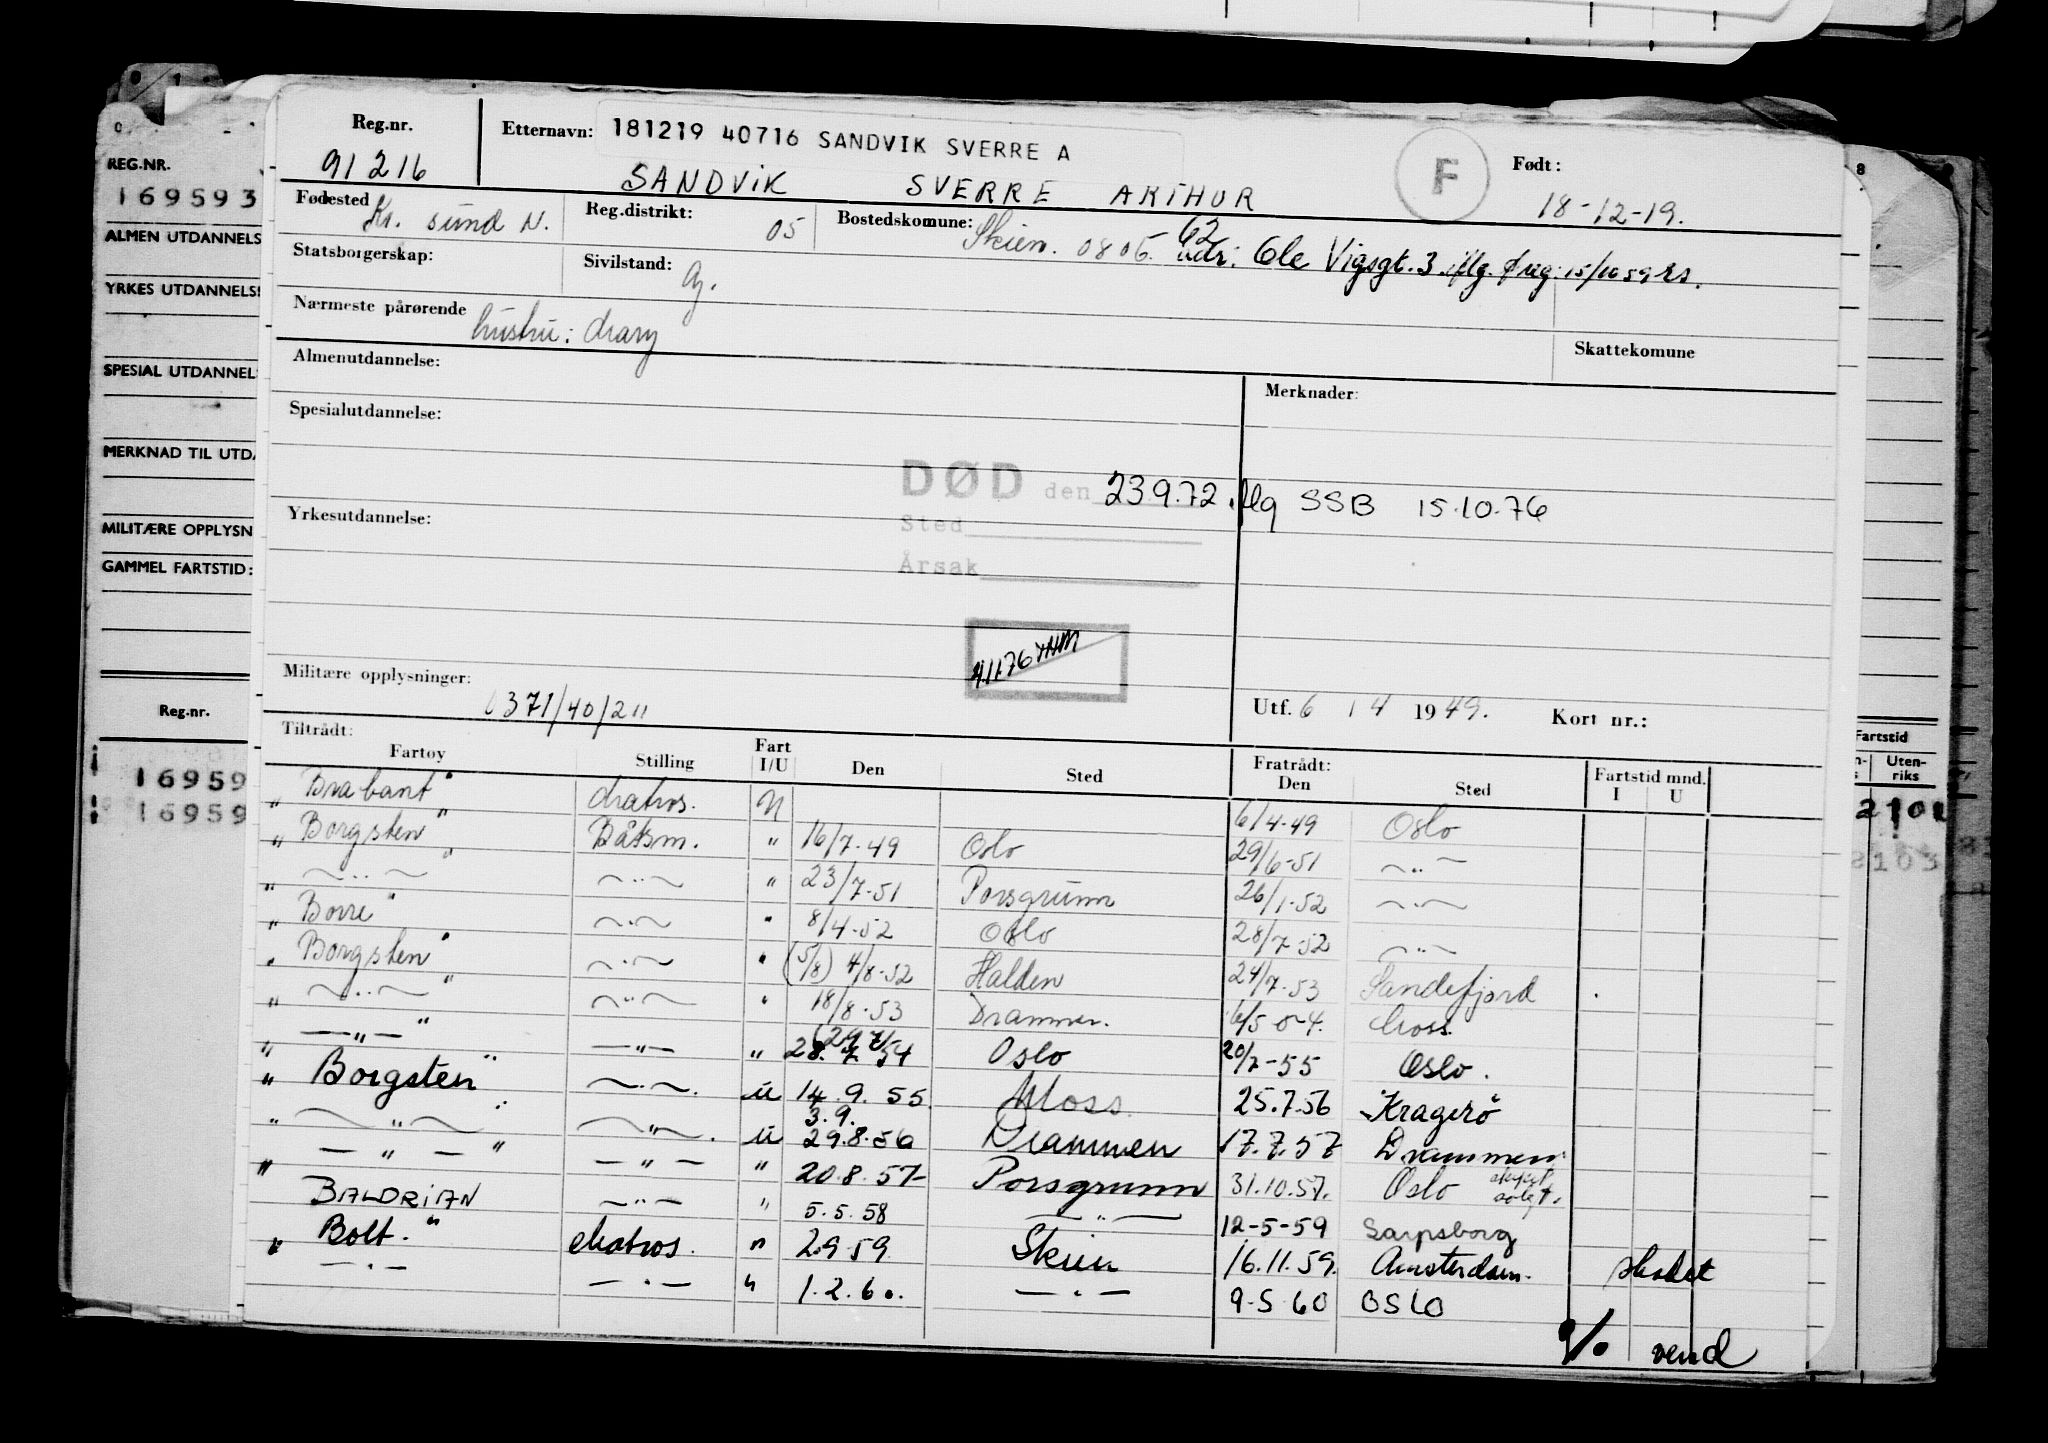 REG.NR.
169593
ALMEN UTDANNELS
YRKES UTDANNELS
SPESIAL UTDANNEL
MERKNAD TIL UTD
MILITÆRE OPPLYSN
GAMMEL FARTSTID:
Reg.nr.
16959
16959
Reg.nr. 91216
Etternavn: 181219 40716 SANDVIK SVERRE A
SANDVIK SVERRE ARTHUR
F
Født: 18-12-19.
Fødested Kr. sund N.
Reg.distrikt: 05
Bostedskomune: Skien. 0806. 62
adr: Ole Vigsgt. 3 iflg. 15/10 59
Statsborgerskap:
Sivilstand: G.
Nærmeste pårørende hustru: Mary
Skattekomune
Almenutdannelse:
Merknader:
Spesialutdannelse:
DØD den 23.9.72. iflg SSB 15.10.76
Sted
Årsak
Yrkesutdannelse:
Militære opplysninger: 371/40/211
Utf. 6 / 4 1949. Kort nr.:
Tiltrådt:
Fartøy Stilling Fart I/U Den Sted Fratrådt: Den Sted Fartstid mnd. I U
" Brabant" Matros. U 6/4-49 Oslo
" Borgsten" Båtsm. " 16/7-49 Oslo 29/6-51 — " —
" — " — " — " — " 23/7-51 Porsgrunn 26/1-52 — " —
" Borre" — " — " 8/4-52 Oslo 28/7-52 — " —
" Borgsten" — " — " (5/8) 4/8-52 Halden 24/7-53 Sandefjord
" — " — " — " — " 18/8-53 Drammen. 6/5 54. Moss.
" — " — " — " — " 28.7.54 (29/7) Oslo 20/7-55 Oslo.
" Borgsten" — " —. u 14.9.55 Moss 25.7.56 Kragerø
" — " — " — " —. u 3.9. 29.8.56 Drammen 17.7.57 Drammen
" — " — " — " — " 20.8.57 Porsgrunn 31.10.57. Oslo skipet solgt.
BALDRIAN — " — " 5.5.58 — " — 12-5-59 Sarpsborg
" Bolt." Matros. " 2.9.59 Skien 16.11.59. Amsterdam. skadet
— " — — " — " 1.2.60. — " — 9-5 60 OSLO
vend
8
Fartstid
Utenriks
2101
8103